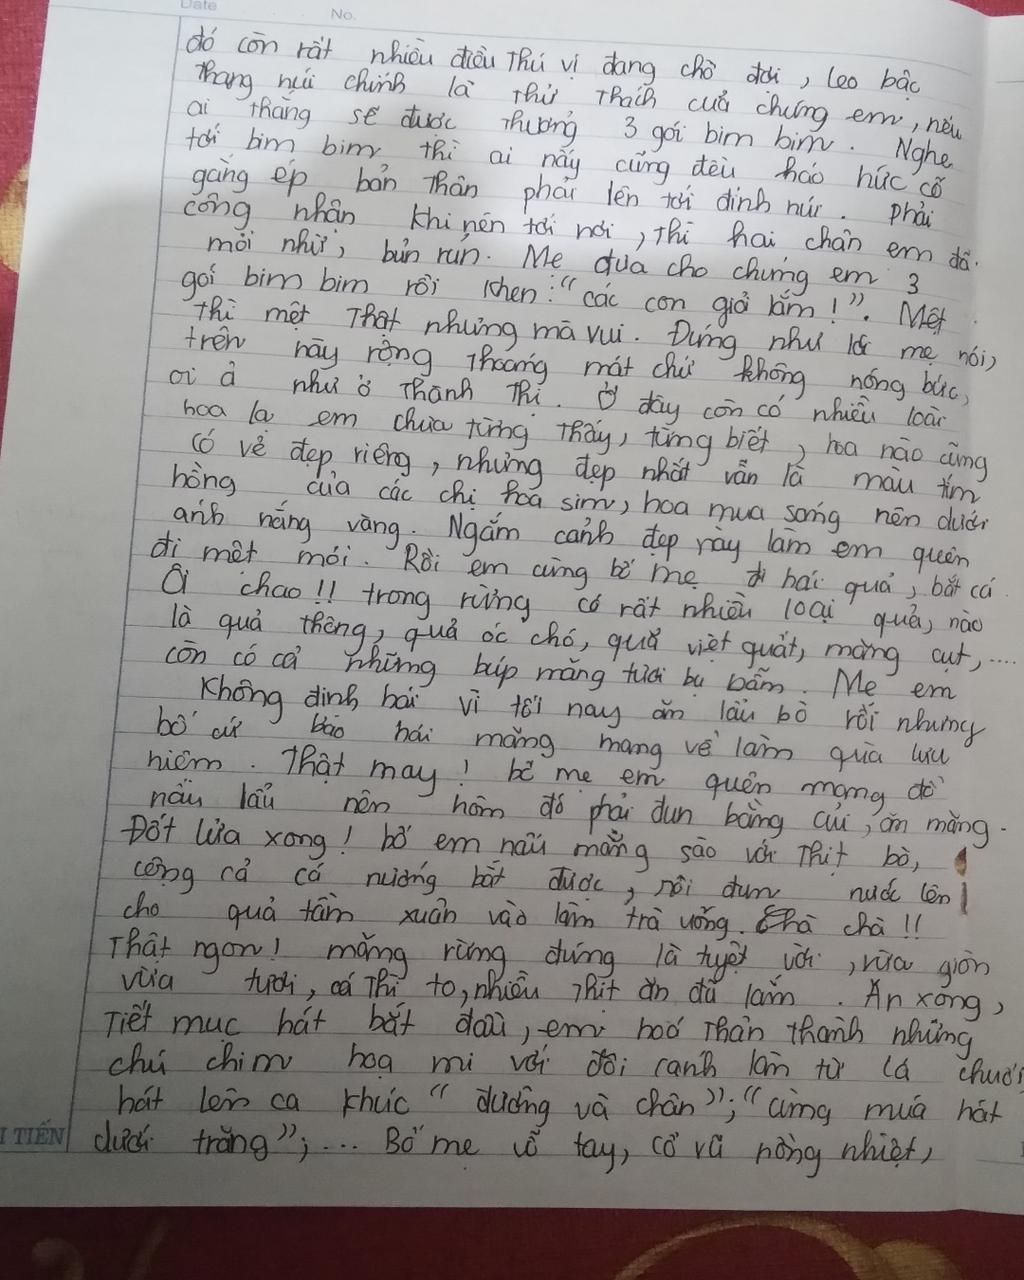 Date No.
đó còn rất nhiều điều thú vị đang chờ đợi, leo bậc
thang núi chính là thử thách của chúng em, nếu
ai thắng sẽ được thưởng 3 gói bim bim. Nghe
tới bim bim thì ai nấy cũng đều háo hức cố
gắng ép bản thân phải lên tới đỉnh núi. Phải
công nhận khi nên tới nơi, thì hai chân em đã
mỏi nhừ, bủn rủn. Mẹ đưa cho chúng em 3
gói bim bim rồi khen: "các con giỏi lắm!". Mệt
thì mệt thật nhưng mà vui. Đúng như lời mẹ nói,
trên này rộng thoáng mát chứ không nóng bức,
oi ả như ở thành thị. Ở đây còn có nhiều loài
hoa lạ em chưa từng thấy, từng biết, hoa nào cũng
có vẻ đẹp riêng, nhưng đẹp nhất vẫn là màu tím
hồng của các chị hoa sim, hoa mua sáng nên dưới
ánh nắng vàng. Ngắm cảnh đẹp này làm em quên
đi mệt mỏi. Rồi em cùng bố mẹ đi hái quả, bắt cá.
Ôi chao!! trong rừng có rất nhiều loại quả, nào
là quả thông, quả óc chó, quả việt quất, măng cụt,....
còn có cả những búp măng tươi bụ bẫm. Mẹ em
không định hái vì tối nay ăn lẩu bò rồi nhưng
bố cứ bảo hái măng mang về làm quà lưu
niệm. Thật may! bố mẹ em quên mang đồ
nấu lẩu nên hôm đó phải đun bằng củi, ăn măng.
Đốt lửa xong! bố em nấu măng sào với thịt bò,
cộng cả cá nướng bắt được, rồi đun nước lên
cho quả tầm xuân vào làm trà uống. Chà chà!!
Thật ngon! măng rừng đúng là tuyệt vời, vừa giòn
vừa tươi, cá thì to, nhiều thịt ăn đã lắm. Ăn xong,
Tiết mục hát bắt đầu, em hoá thân thành những
chú chim hoạ mi với đôi cánh làm từ lá chuối
hát lên ca khúc "đường và chân"; "cùng múa hát
I TIẾN dưới trăng";... Bố mẹ vỗ tay, cổ vũ nồng nhiệt,